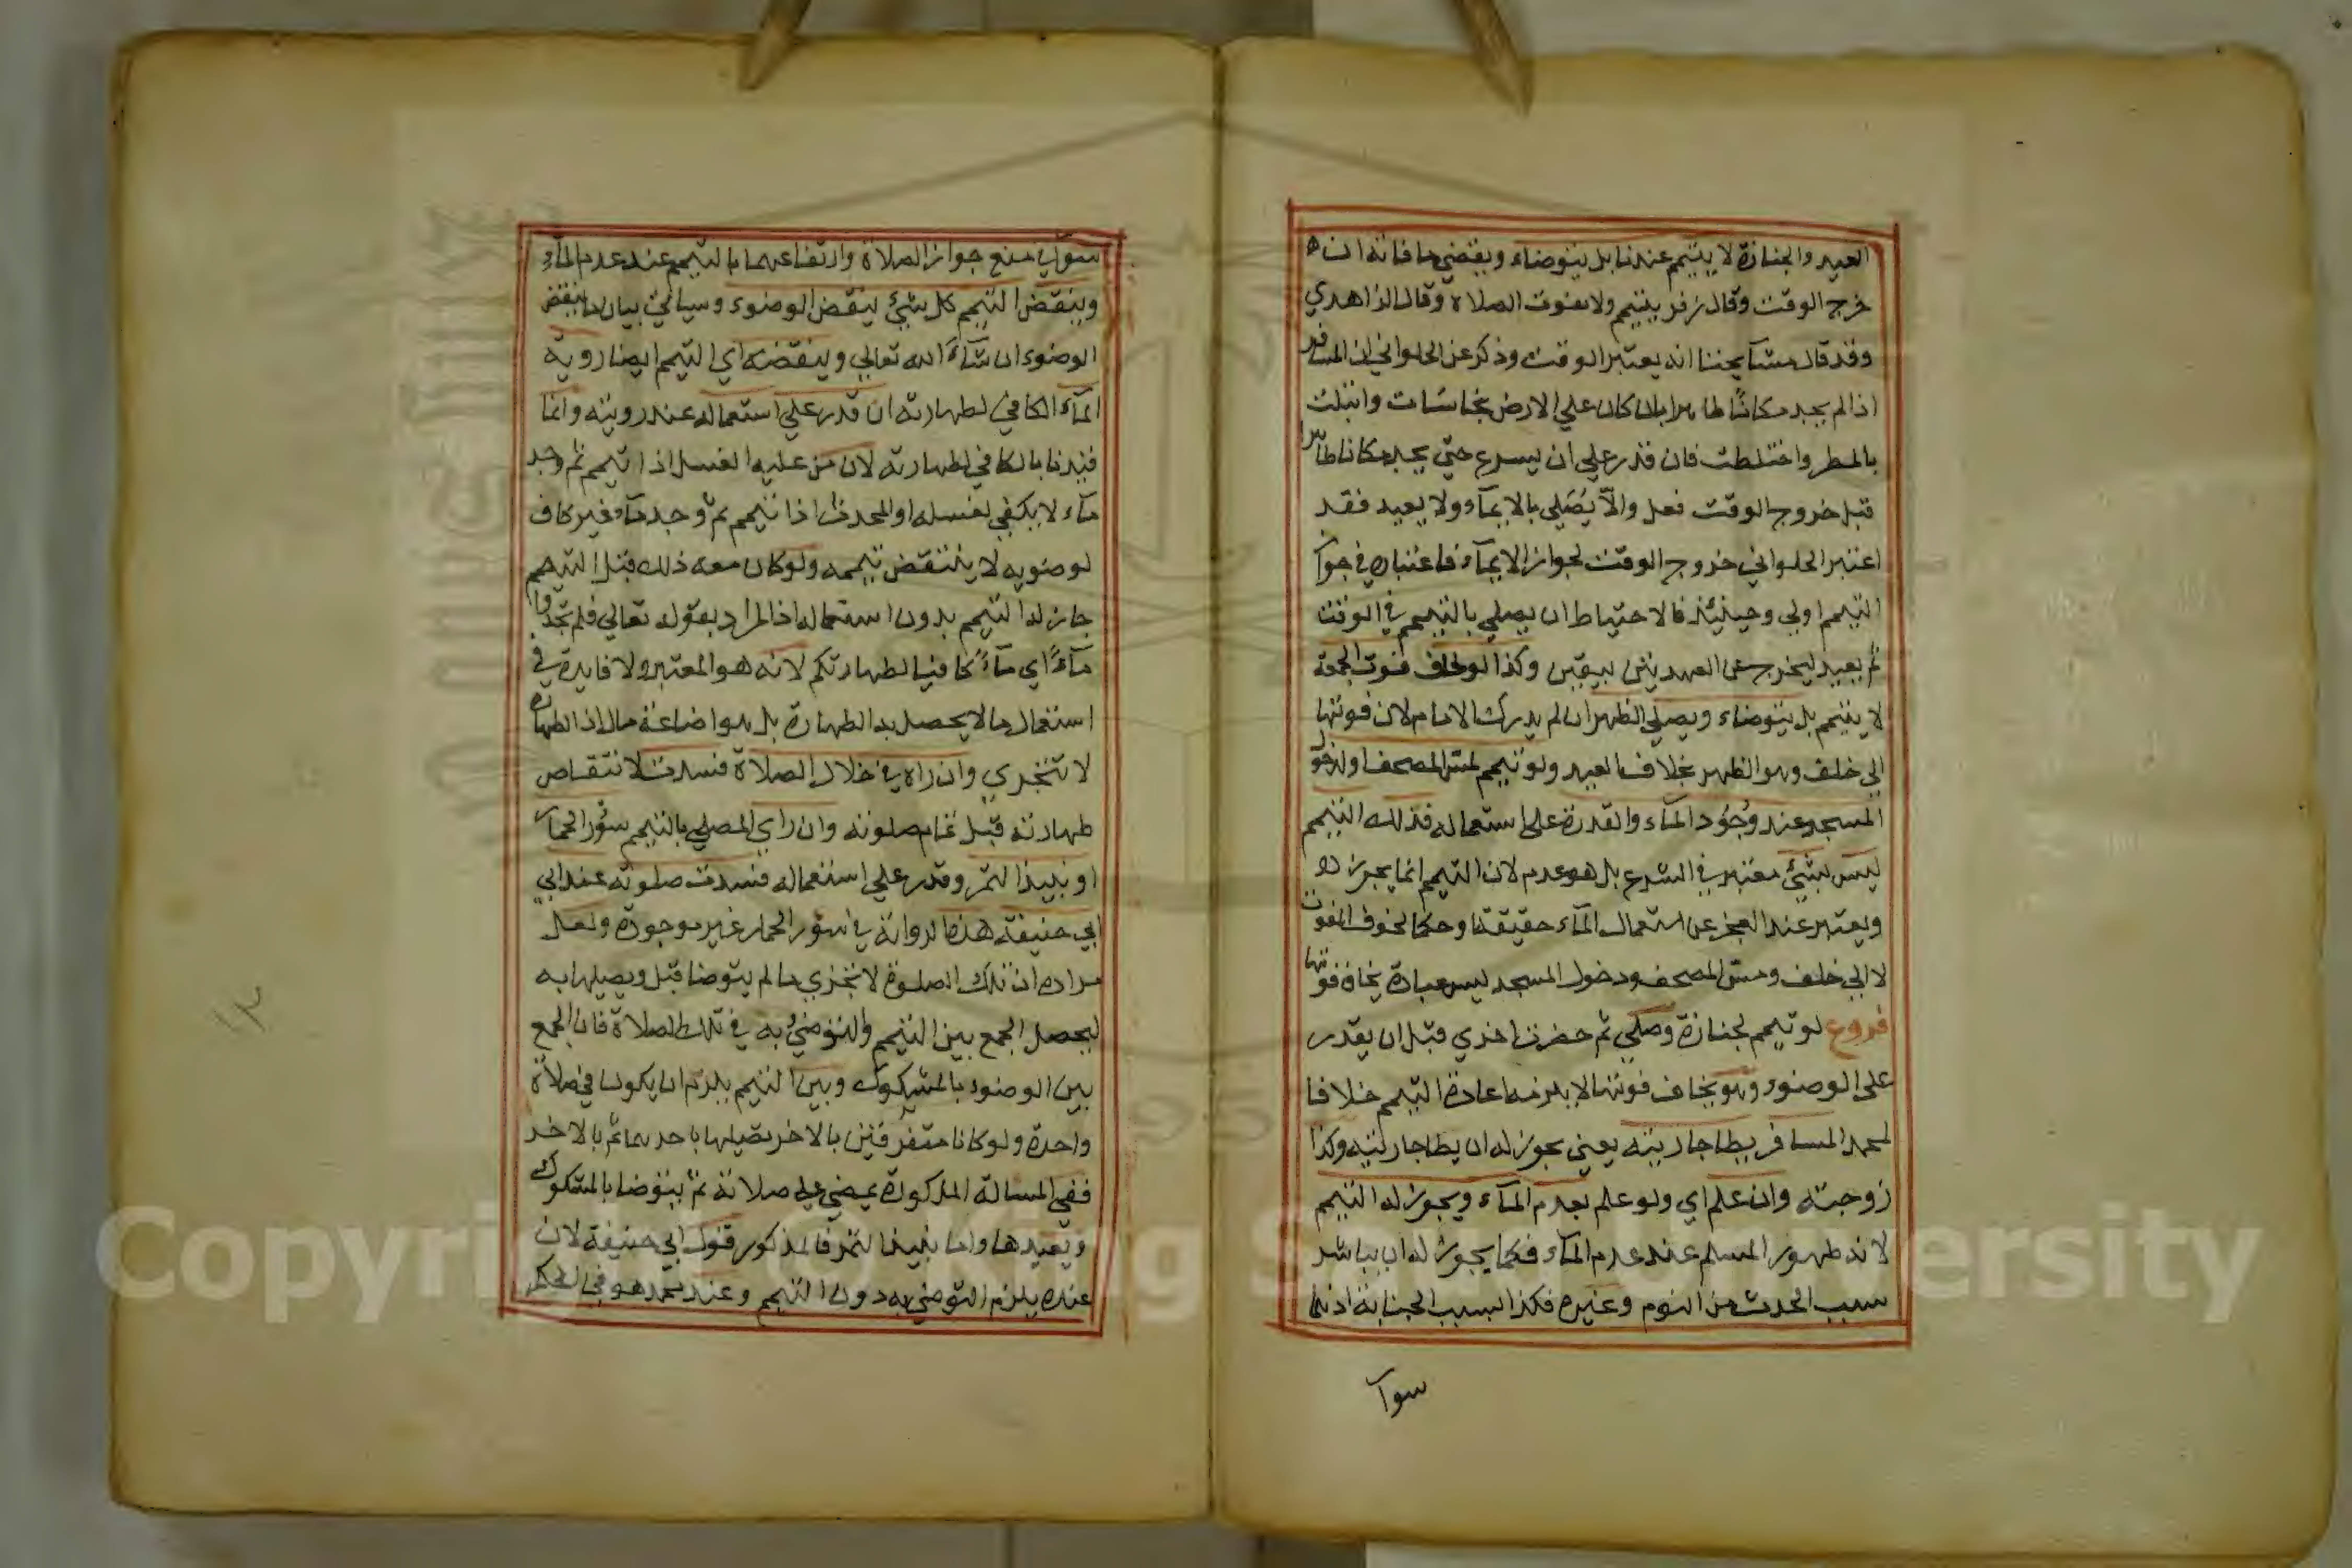 العيد والجنازة لا يتيمم عندنا بل يتوضاء ويقضي ما فاته ان
خرج الوقت وقال زفر يتيمم ولا يفوت الصلاة وقال الزاهدي
وقد قال مشايخنا انه يعتبر الوقت وذكر عن الحلواني ان المسافر
اذا لم يجد مكانا طاهرا بان كان علي الارض نجاسات وابتلت
بالمطر واختلطت فان قدر علي ان يسرع حتي يجد مكانا طاهرا
قبل خروج الوقت فعل والا يصلي بالايماء ولا يعيد فقد
اعتبر الحلواني خروج الوقت لجواز الايماء فاعتباره في جواز
التيمم اولي وحينئذ فالاحتياط ان يصلي بالتيمم في الوقت
ثم يعيد ليخرج عن العهدتين بيقين وكذا لو خاف فوت الجمعة
لا يتيمم بل يتوضاء ويصلي الظهر ان لم يدرك الامام لان فوتها
الي خلف وهو الظهر بخلاف العيد ولو تيمم لمس المصحف او لدخول
المسجد عند وجود الماء والقدرة علي استعماله فذلك التيمم
ليس بشئ معتبر في الشرع بل هو عدم لان التيمم انما يجوز
ويعتبر عند العجز عن استعمال الماء حقيقة او حكما لخوف الفوت
لا الي خلف ومس المصحف ودخول المسجد ليس عبادة يخاف فوتها
فروع لو تيمم لجنازة وصلي ثم حضرت اخري قبل ان يقدر
علي الوضوء وهو يخاف فوتها لا يلزمه اعادة التيمم خلافا
لمحمد المسافر يطا جاريته يعني يجوز له ان يطا جاريته وكذا
زوجته وان علم اي ولو علم بعدم الماء ويجوز له التيمم
لانه طهور المسلم عند عدم الماء فكما يجوز له ان يباشر
سبب الحدث من النوم وغيره فكذا السبب الجنابة اذ هما
سوآ
سوآ في منع جواز الصلاة وارتفاعهما بالتيمم عند عدم الماء
وينقض التيمم كل شئ ينقض الوضوء وسياتي بيان ما ينقض
الوضوء ان شاء الله تعالي وينقضه اي التيمم ايضا روية
الماء الكافي لطهارته ان قدر علي استعماله عند رويته وانما
قيدنا بالكافي لطهارته لان من عليه الغسل اذا تيمم ثم وجد
ماء لا يكفي لغسله او المحدث اذا تيمم ثم وجد ماء غير كاف
لوضويه لا ينتقض تيممه ولو كان معه ذلك قبل التيمم
جاز له التيمم بدون استعماله اذ المراد بقوله تعالي فلم تجدوا
ماء اي ماء كافيا لطهارتكم لانه هو المعتبر ولا فايدة في
استعمال ما لا يحصل به الطهارة بل هو اضاعة مال اذ الطهارة
لا تتجزي وان راه في خلال الصلاة فسدت لانتقاض
طهارته قبل تمام صلوته وان راي المصلي بالتيمم سؤر الحمار
او نبيذ التمر وقدر علي استعماله فسدت صلوته عند ابي
ابي حنيفة هذه الرواية في سؤر الحمار غير موجودة ولعل
مراده ان تلك الصلوة لا تجزي ما لم يتوضا قبل ويصليها به
ليحصل الجمع بين التيمم والتوضئ به في تلك الصلاة فان الجمع
بين الوضوء بالمشكوك وبين التيمم يلزم ان يكون في صلاة
واحدة ولو كانا متفرقين بالاخر بصليها باحدهما ثم بالاخر
ففي المسالة المذكورة يمضي علي صلاته ثم يتوضا بالمشكوك
ويعيدها واما نبيذ التمر فالمذكور قول ابي حنيفة لان
عنده يلزم التوضي به دون التيمم وعند محمد هو في الحكم
١٣
Copyright © King Saud University